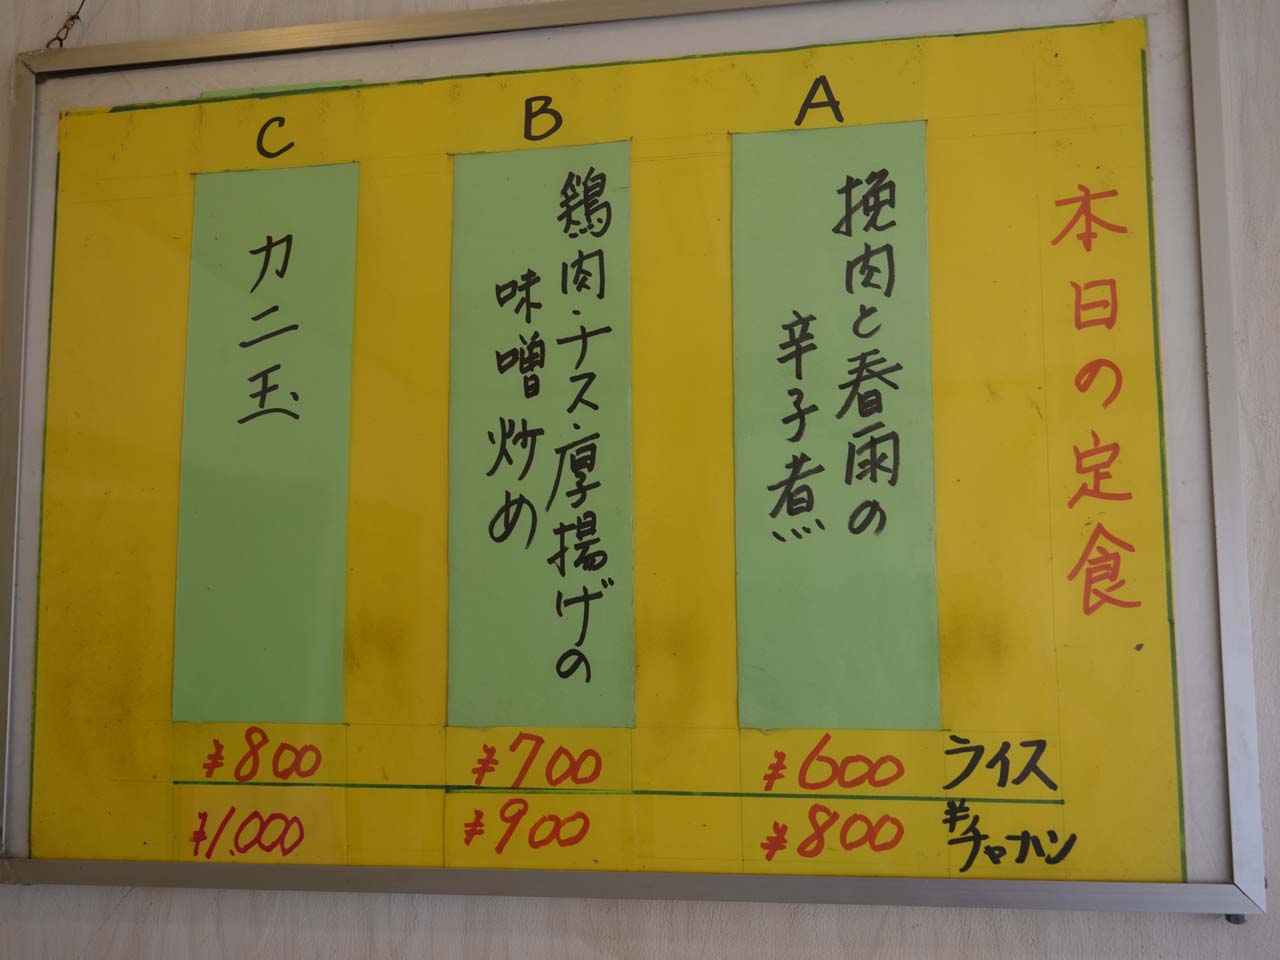 本日の定食
A
挽肉と春雨の
辛子煮
B
鶏肉・ナス・厚揚げの
味噌炒め
C
カニ玉
ライス ¥600 ¥700 ¥800
半チャーハン ¥800 ¥900 ¥1,000